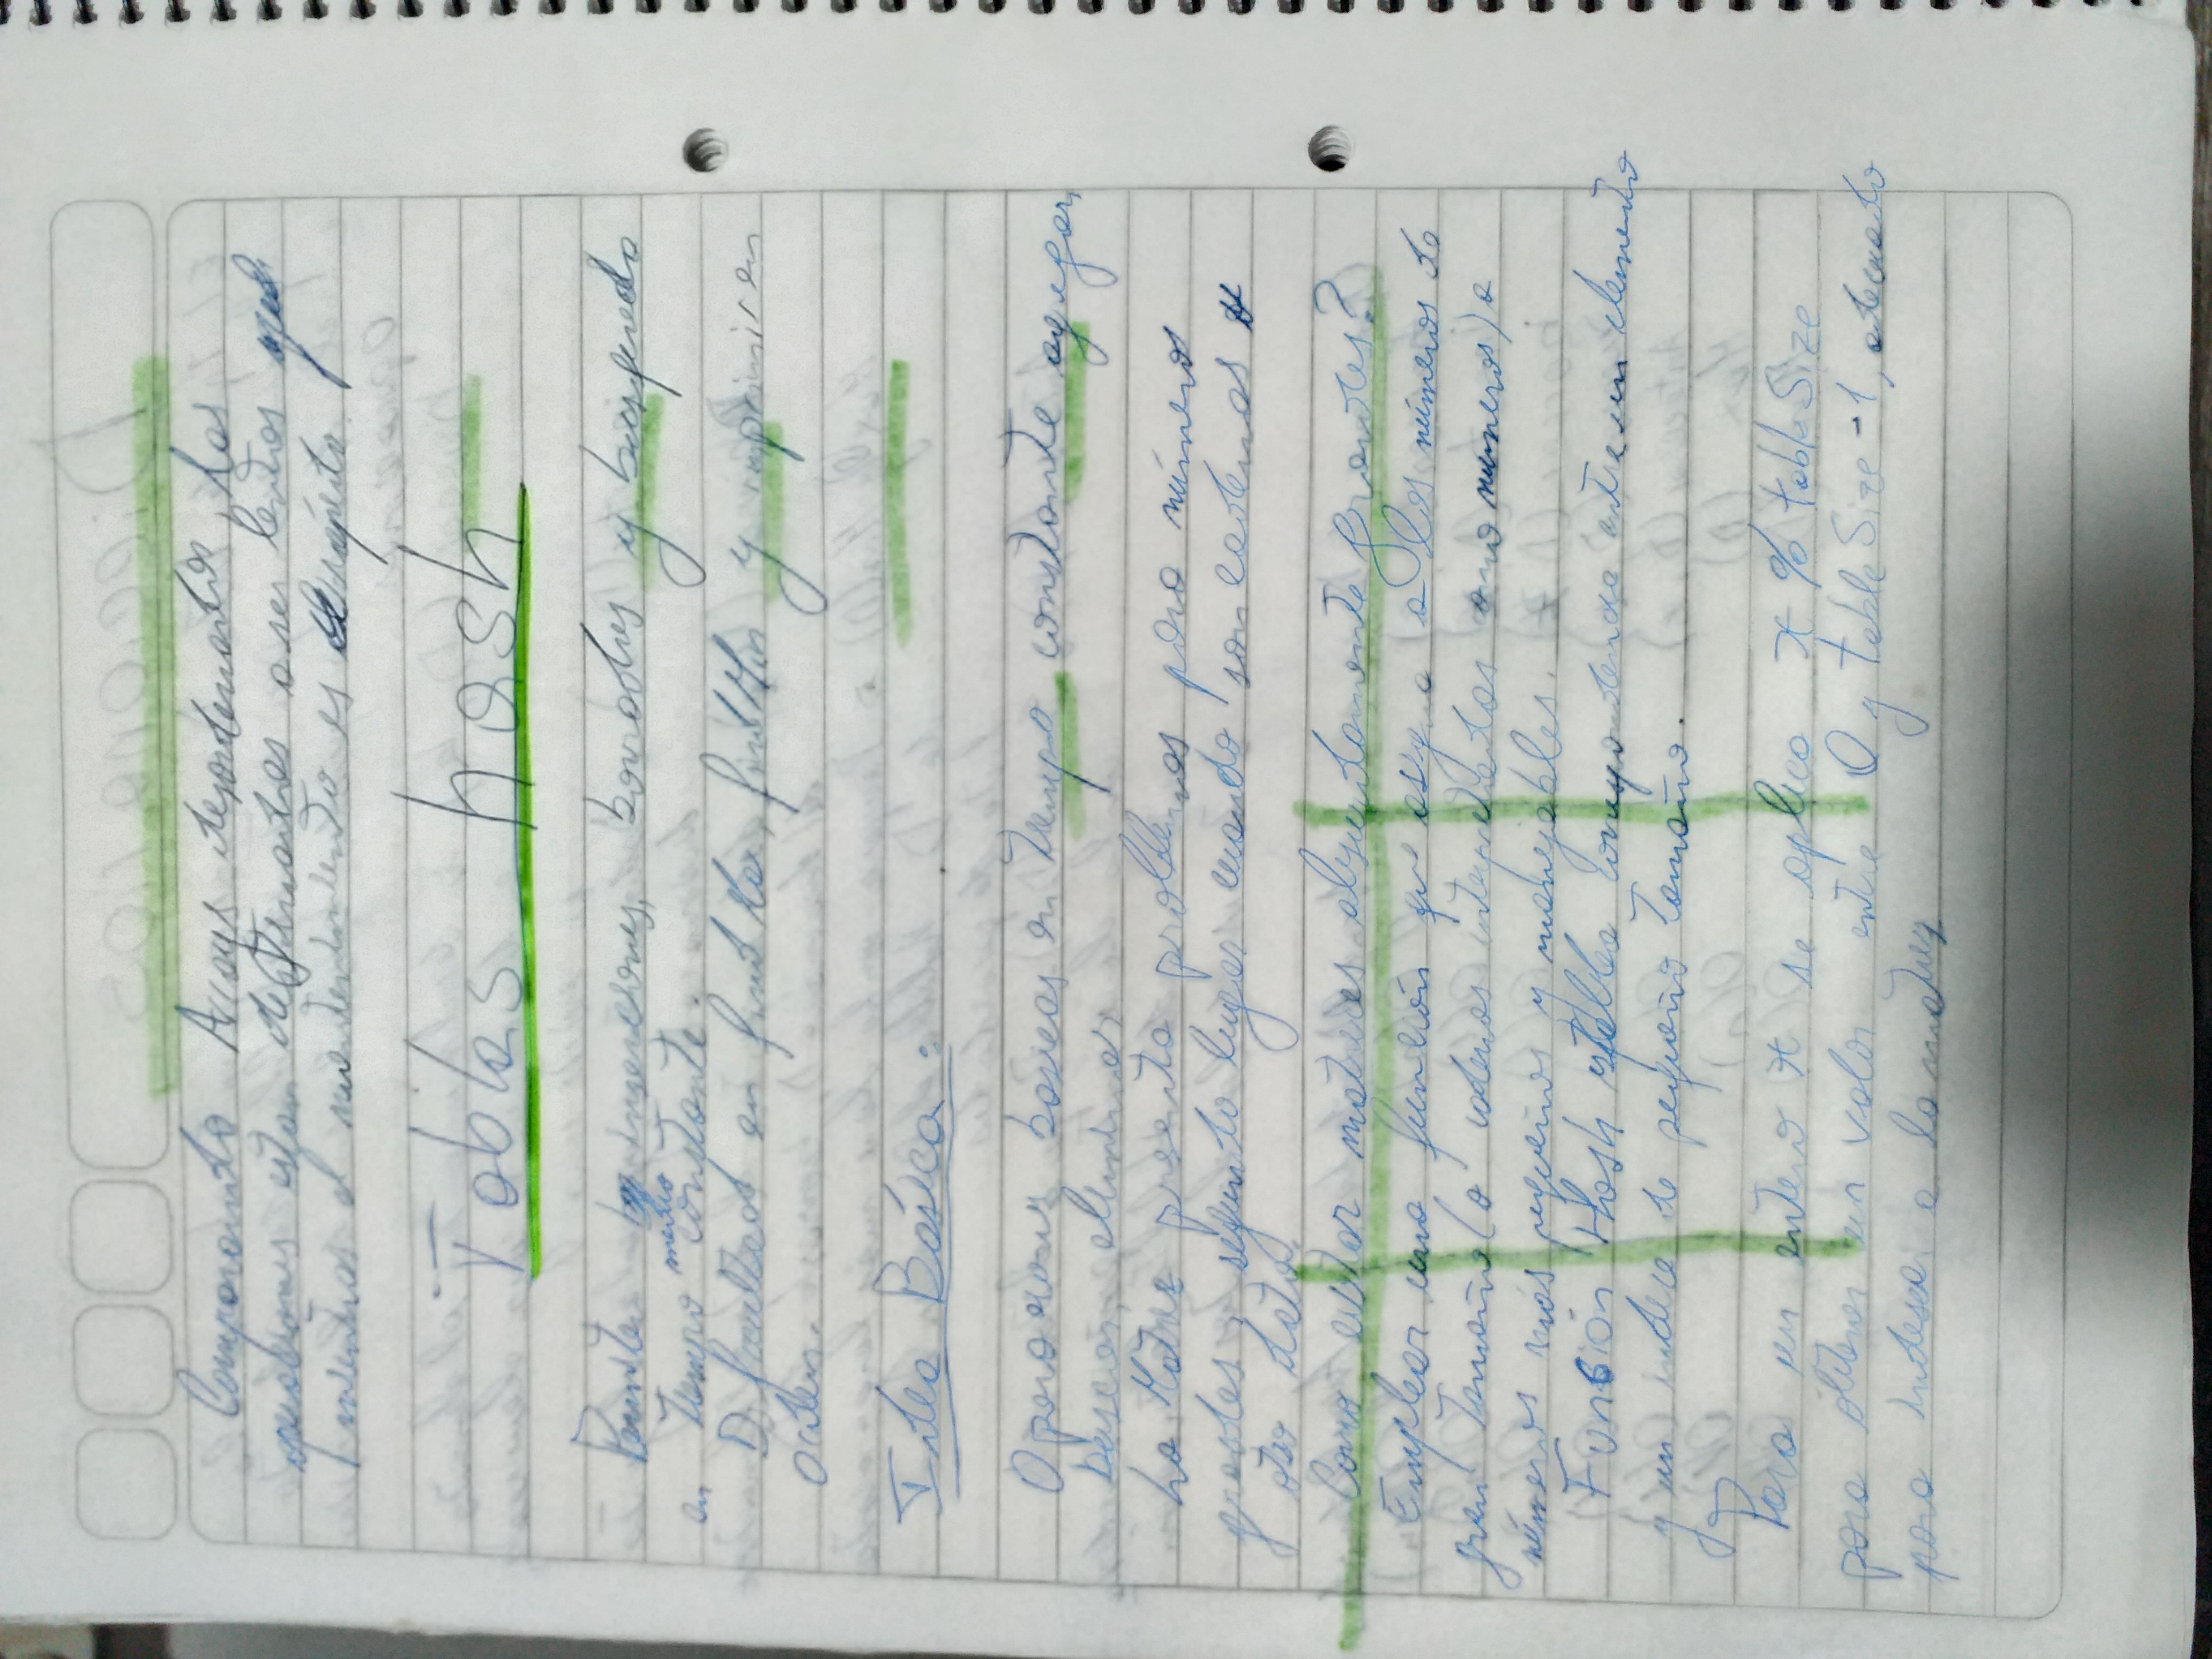 Comparando Arrays desordenados, las
operaciones estan destinadas a ser lentas
mientras el mantenimiento es rápido.
Tablas hash
Permiten inserciones, borrados y busqueda
en tiempo medio constante.
Dificultad en find Max, find Min y imprimir en
orden.
Idea Básica:
Operaciones basicas en tiempo constante agregar,
buscar, eliminar
La Matriz presenta problemas para números
grandes, segundo lugar cuando son cadenas u
otro dato.
Como evitar matrices absurdamente grandes?
Emplear una función que asigna a los números de
gran tamaño (o cadenas interpretadas como numeros) a
números más pequeños y manejables.
Función Hash establece correspondencia entre un elemento
y un indice de pequeño tamaño.
Para un entero x se aplica x % tableSize
para obtener un valor entre 0 y tableSize -1, adecuado
para indexar a la matriz